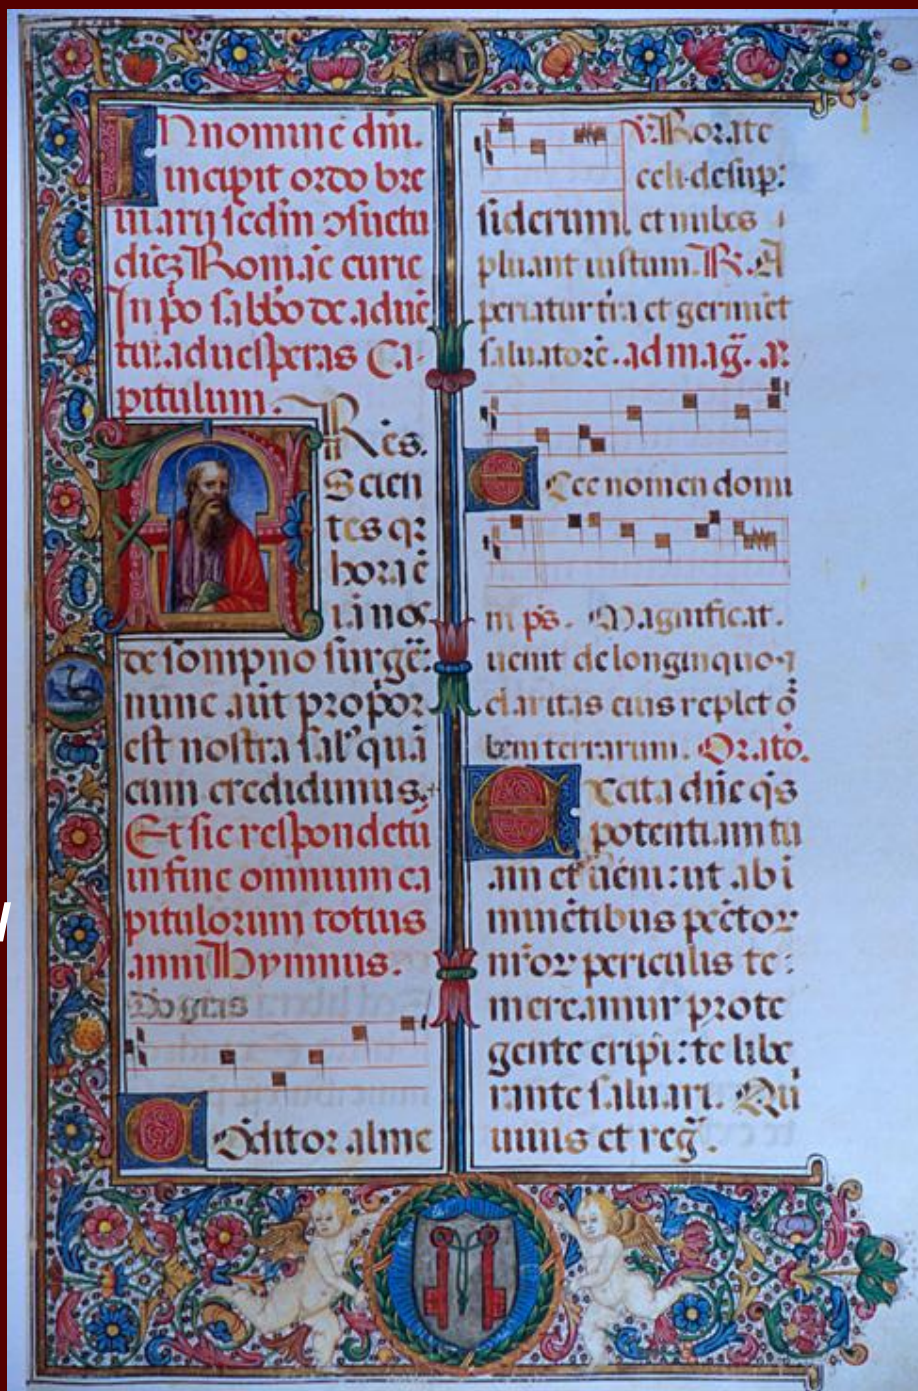 In nomine dñi.
incipit ordo bre
uiarij scdm ɔsuetu
dieʒ Romãe curie
In p̄o sabbo de aduē
tu. ad uesperas Ca-
pitulum.
Scien
tes qꝛ
hora ē
iã noc
de sompno surgē:
nunc aut propior
est nostra sal' quã
cum credidimus.
Et sic respondetū
in fine omnium ca
pitulorum totius
anni Hymnus.
Cõditor alme
℣. Rorate
celi desup:
siderum et nubes
pluant iustum. ℟. A
periatur tr̃a et germīet
saluatorē. ad mag̃. añ
Ecce nomen domi
ni ps. Magnificat.
uenit de longinquo ⁊
claritas eius replet o᷈
bem terrarum. Orato.
Excita dñe q̃s
potentiam tu
am et ueni: ut ab i
minētibus pcc̃toꝝ
nr̃oꝝ periculis te
mereamur prote
gente eripi: te libe
rante saluari. Qui
uiuis et reg̃.